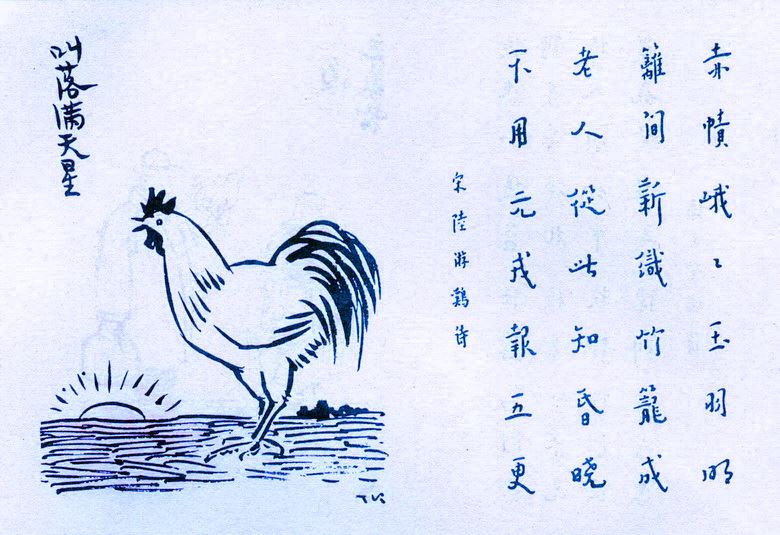 赤幘峨〻玉羽明
籬間新織竹籠成
老人從此知昏曉
不用元戎報五更
宋陸游鷄詩
叫落满天星
TK